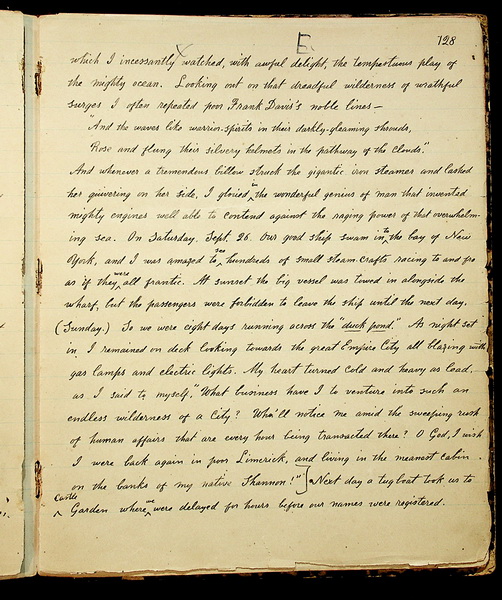 E. 128
which I incessantly watched, with awful delight, the tempestuous play of
the mighty ocean. Looking out on that dreadful wilderness of wrathful
surges I often repeated poor Frank Davis's noble lines—
"And the waves like warrior-spirits in their darkly-gleaming shrouds,
Rose and flung their silvery helmets in the pathway of the clouds."
And whenever a tremendous billow struck the gigantic iron steamer and lashed
her quivering on her side, I gloried in the wonderful genius of man that invented
mighty engines well able to contend against the raging power of that overwhelm-
ing sea. On Saturday, Sept. 26. Our good ship swam into the bay of New
York, and I was amazed to see hundreds of small steam crafts racing to and fro
as if they were all frantic. At sunset the big vessel was towed in alongside the
wharf, but the passengers were forbidden to leave the ship until the next day.
(Sunday.) So we were eight days running across the "duck pond." As night set
in, I remained on deck looking towards the great Empire City all blazing with
gas lamps and electric lights. My heart turned cold and heavy as lead,
as I said to myself, "What business have I to venture into such an
endless wilderness of a City? Who'll notice me amid the sweeping rush
of human affairs that are every hour being transacted there? O God, I wish
I were back again in poor Limerick, and living in the meanest cabin
on the banks of my native Shannon!"] Next day a tugboat took us to
Castle Garden where we were delayed for hours before our names were registered.